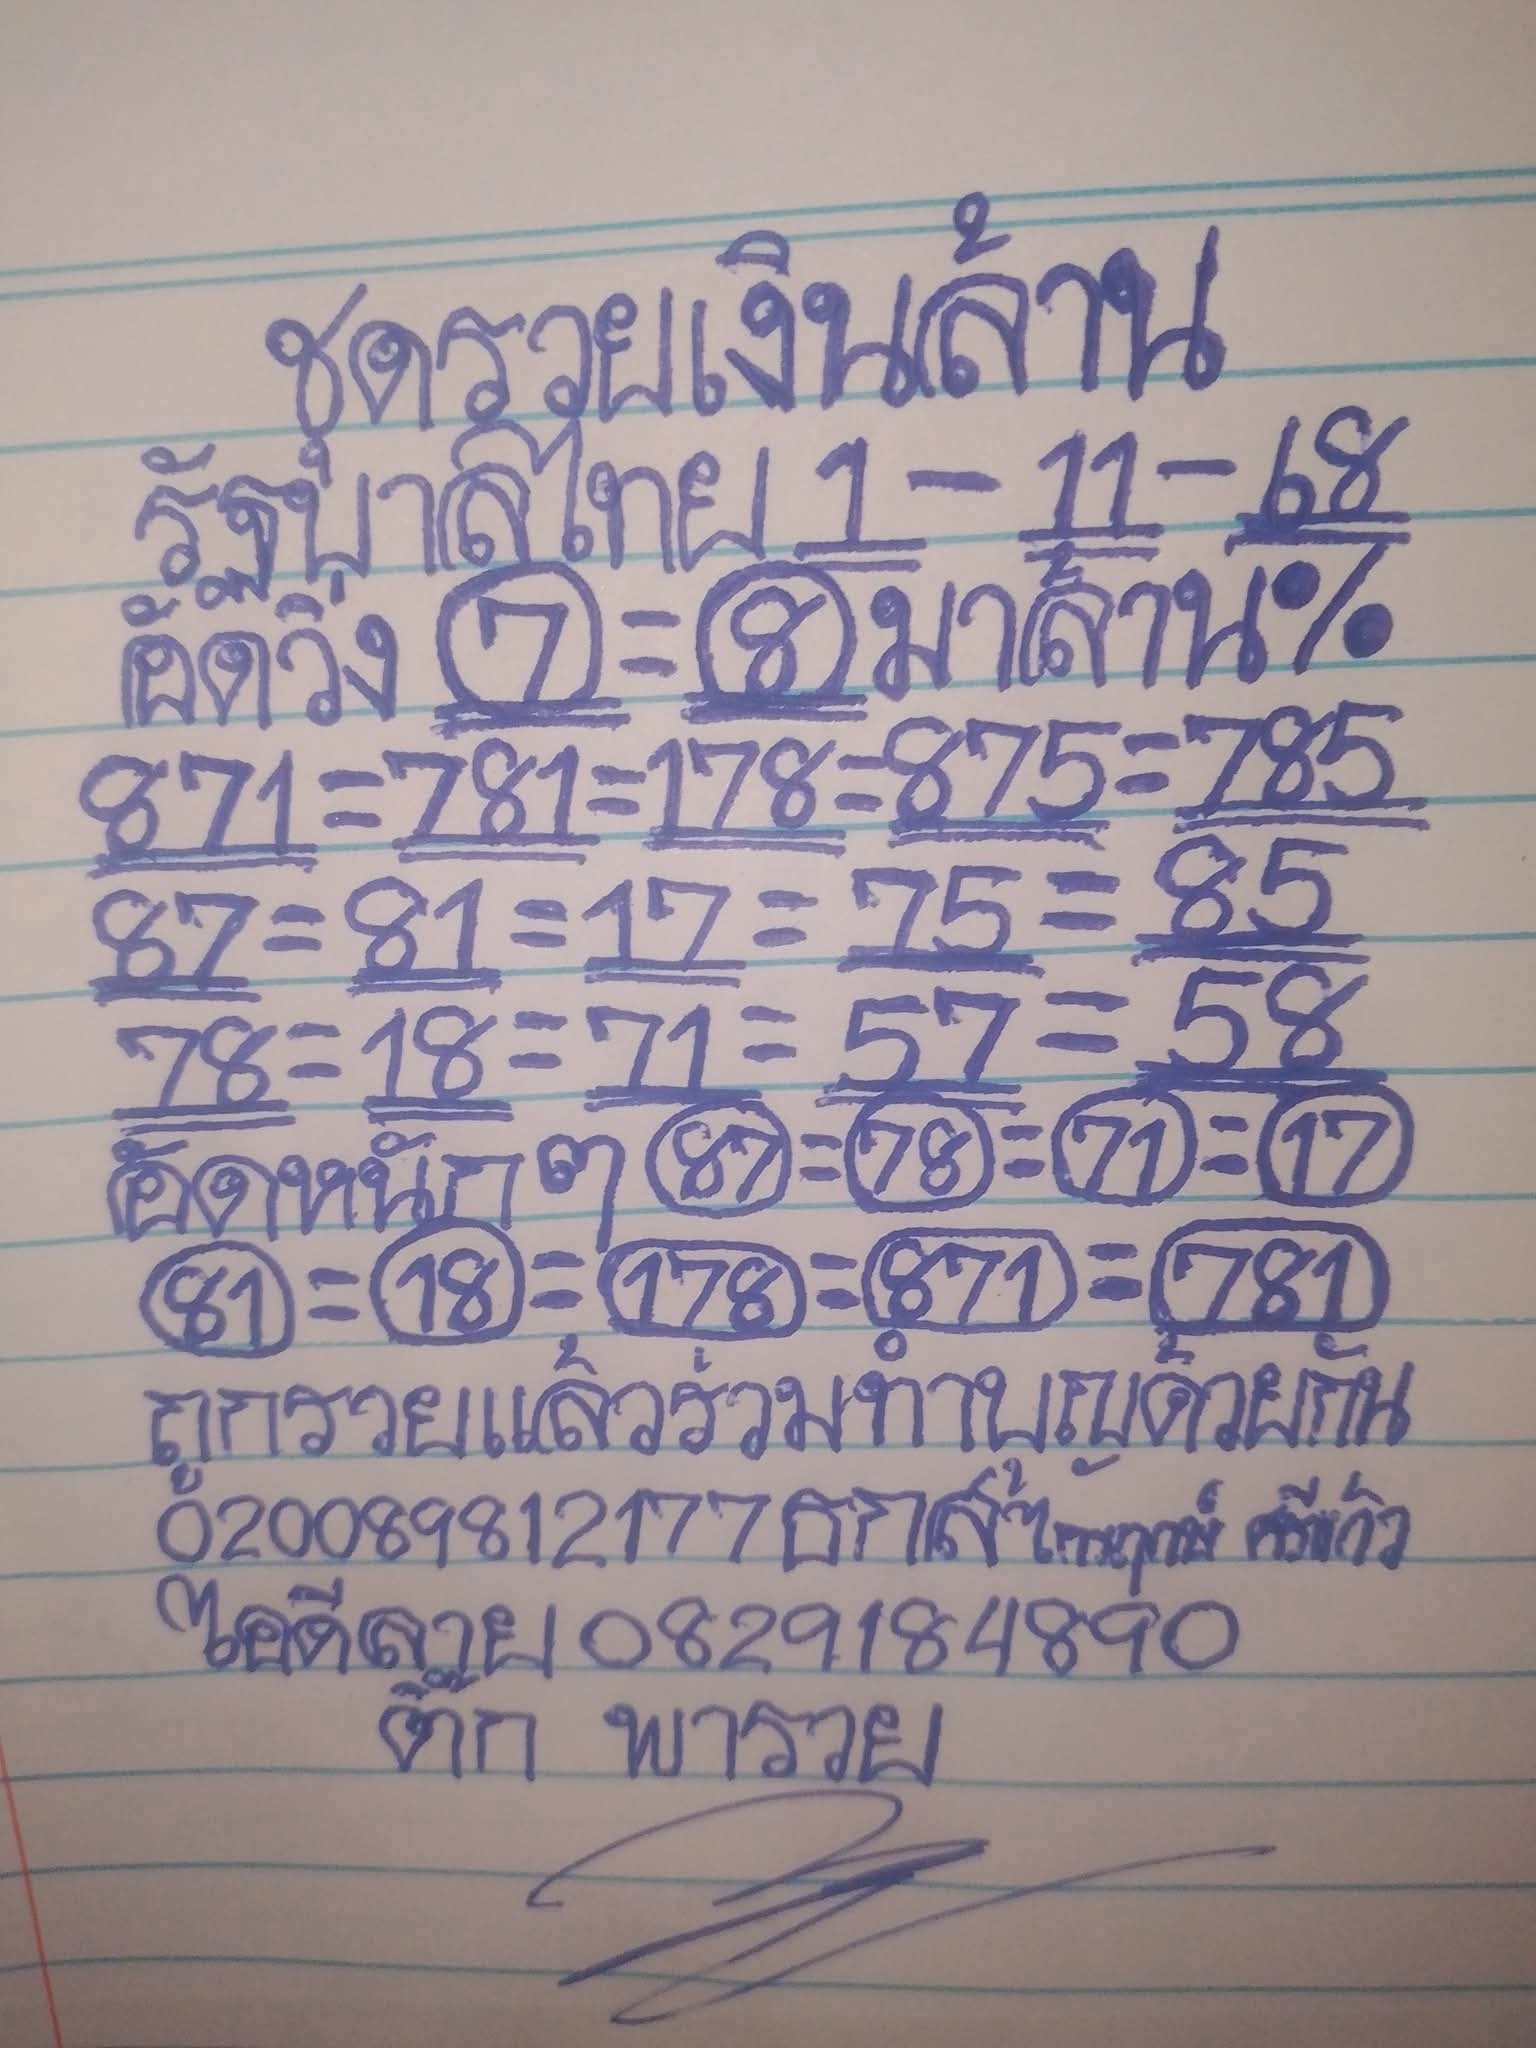 ชุดรวยเงินล้าน
รัฐบาลไทย 1 - 11 - 68
อัดวิ่ง 7 = 8 มาล้าน%
871 = 781 = 178 = 875 = 785
87 = 81 = 17 = 75 = 85
78 = 18 = 71 = 57 = 58
อัดหนักๆ 87 = 78 = 71 = 17
81 = 18 = 178 = 871 = 781
ถูกรวยแล้วร่วมทำบุญด้วยกัน
020089812177 ธกส
ไอดีลาย 0829184890
ติ๊ก พารวย